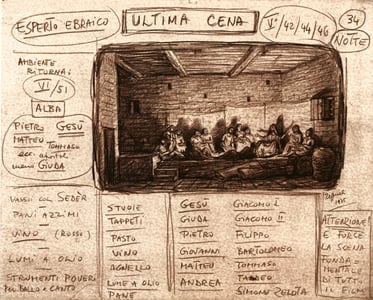 ESPERTO EBRAICO
ULTIMA CENA
V°/42/44/46
34
NOTTE
AMBIENTE
RITORNA:
VI/51
ALBA
PIETRO GESÙ
MATTEO
TOMMASO
ecc.
meno GIUDA
VASSOI COL SEDÈR
PANI AZZIMI
VINO (ROSSO)
LUMI A OLIO
STRUMENTI POVERI
PER BALLO E CANTO
STUOIE
TAPPETI
PASTO
VINO
AGNELLO
LUME A OLIO
PANE
GESÙ
GIUDA
PIETRO
GIOVANNI
MATTEO
ANDREA
GIACOMO I
GIACOMO II
FILIPPO
BARTOLOMEO
TOMMASO
TADDEO
SIMONE ZELOTA
ATTENZIONE!
È FORSE
LA SCENA
FONDA
MENTALE
DI TUTTO
IL FILM